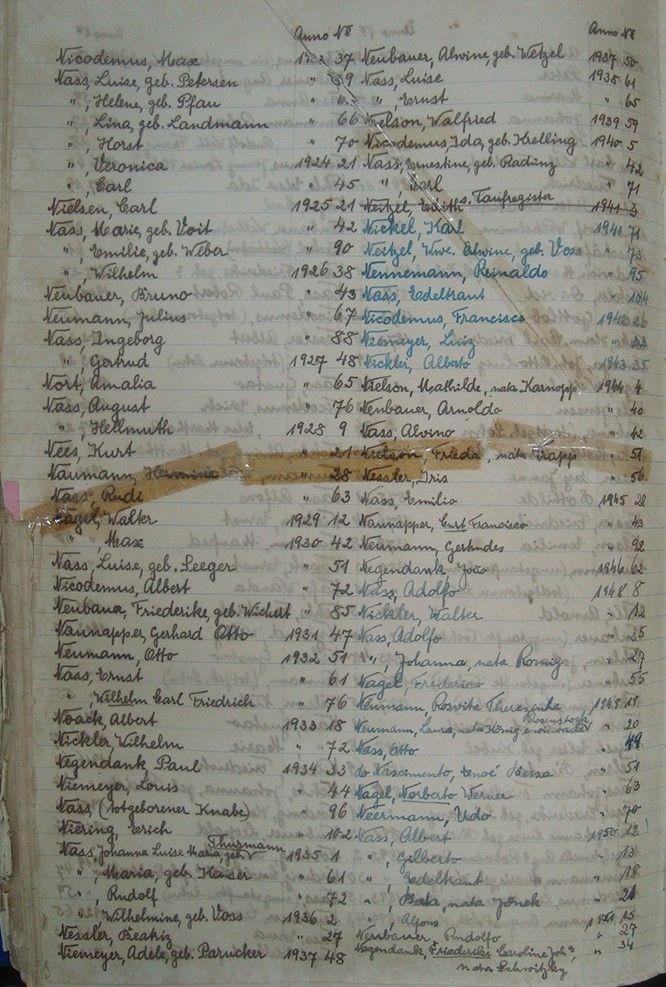 Anno No
Nicodemus, Max 37
Nass, Luise, geb. Petersen " 39
" , Helene, geb. Pfau "
" , Lina, geb. Landmann " 66
" , Horst " 70
" , Veronica 1924 21
" Carl " 45
Nielsen, Carl 1925 21
Nass, Marie, geb. Voit " 42
" , Emilie, geb. Weber " 90
" Wilhelm 1926 38
Neubauer, Bruno " 43
Neumann, Julius " 67
Nass, Ingeborg " 88
" , Gertrud 1927 48
Nort, Amalia " 65
Nass, August " 76
" , Hellmuth 1928 9
Nees, Kurt " 21
Naumann, Hermine " 28
Nass, Rudi " 63
Nagel, Walter 1929 12
" , Max 1930 42
Nass, Luise, geb. Seeger " 51
Nicodemus, Albert " 72
Neubaua, Friederike, geb. Wichert " 85
Nannapper, Gerhard Otto 1931 47
Neumann, Otto 1932 51
Nass, Ernst " 61
" , Wilhelm Carl Friedrich " 76
Noack, Albert 1933 18
Nickler, Wilhelm " 72
Negendank, Paul 1934 33
Niemeyer, Louis " 44
Nass, (totgeborener Knabe) " 96
Niering, Erich " 102
Nass, Johanna Luise Maria, geb. Thurmann 1935 1
" , Maria, geb. Kaiser " 61
" , Rudolf " 72
" Wilhelmine, geb. Voss 1936 2
Nessler, Beatriz " 27
Niemeyer, Adele, geb. Parucker 1937 48
Anno No
Neubauer, Alwine, geb. Wetzel 1937 50
Nass, Luise 1938 61
" , Ernst " 65
Nelson, Walfried 1939 59
Nicodemus, Ida, geb. Krelling 1940 5
Nass, Ernestine, geb. Radünz " 42
" Carl " 71
Neitzel, Edith s. Taufregister 1941 3
Nickel, Karl 1941 71
Neitzel, Wwe. Alwine, geb. Voss " 73
Nennemann, Reinaldo " 95
Nass, Edeltraut " 104
Nicodemus, Francisco 1942 26
Niemeyer, Luiz " 33
Nickler, Alberto 1943 35
Nielson, Mathilde, nata Karnopp 1944 4
Neubauer, Arnoldo " 40
Nass, Alvino " 42
Nielson, Frieda, nata Trapp " 51
Nessler, Iris " 56
Nass, Emilia 1945 28
Nannapper, Curt Francisco " 43
Neumann, Gertrudes " 92
Negendank, João 1946 62
Nass, Adolfo 1948 8
Nickler, Walter " 12
Nass, Adolfo " 25
" , Johanna, nata Romig " 27
Nagel, Frederico " 55
Neumann, Rosvita Therezinha 1949 19
Neumann, Laura, nata König, Rosenstock " 20
Nass, Otto " 49
do Nascimento, Bessa " 51
Nagel, Norberto Werner " 63
Neermann, Udo " 70
Nass, Albert 1950 12
" , Gilberto " 13
" , Edeltraut " 18
" , nata " 26
" , Alfons 1951 15
Neubauer, Rudolfo " 27
Negendank, Friederike Caroline Joha. " 34
nata